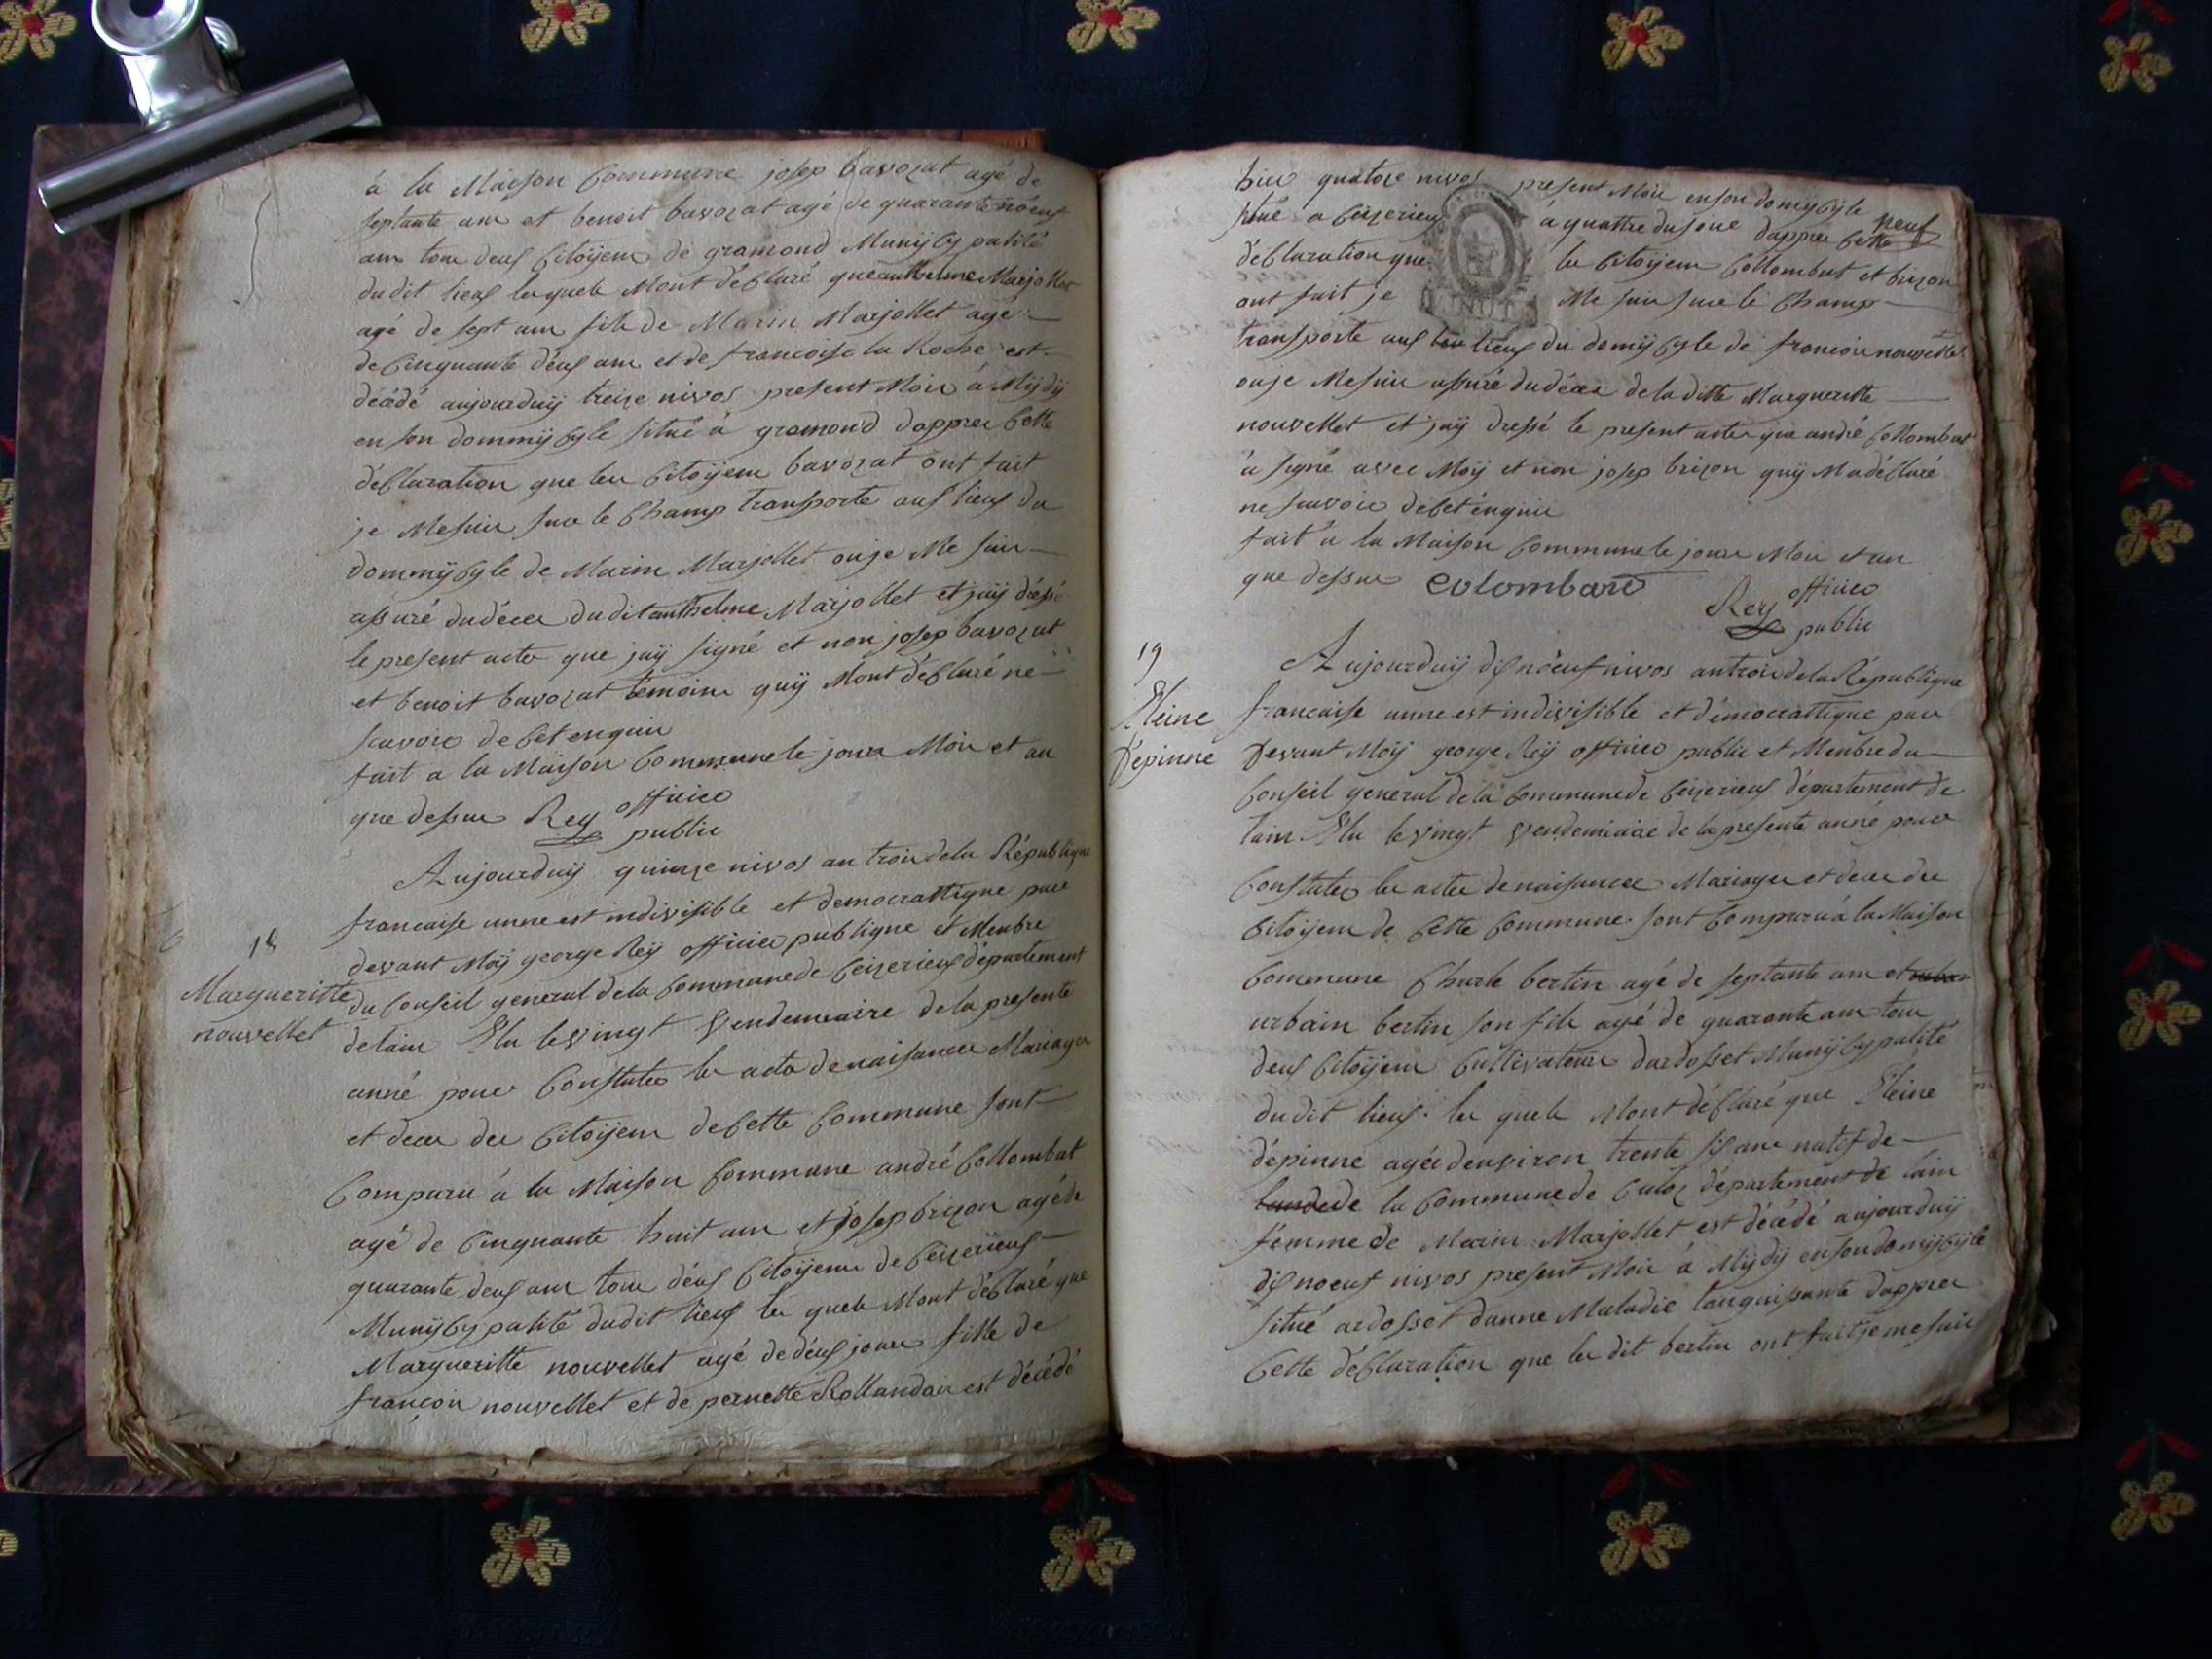 à la Maison Commune josep bavozat agé de
septante ans et benoit bavozat agé de quarante nóeuf
ans tous deus Citoÿens de gramond Munijcypalité
dudit lieus lesquels Mont déclaré que anthelme Marjollet
agé de sept ans fils de Marin Marjollet agé
de Cinquante déus ans et de francoise la Roche est
décédé aujourduÿ treize nivos present Mois à Mÿdÿ
en son dommÿcyle situé à gramond dappres Cette
déclaration que les Citoÿens bavozat ont fait
je Mesuis sur le Champ transporte aus lieus du
dommÿcyle de Marin Marjollet ouje Me suis
assuré dudéces dudit anthelme Marjollet et jaÿ déssé
le present acte que jaÿ signé et non josep bavozat
et benoit bavozat témoins quÿ Mont déclaré ne
scavoir de Cet enquis
fait a la Maison Commune le jour Mois et an
que dessus Rey officier
public
18
Margueritte
nouvellet
Aujourduÿ quinze nivos an trois dela République
francaise unne est indivisible et democrattique par
devant Moÿ george Reÿ officier publique et Menbre
du Conseil general dela Commune de Ceizerieus département
delain Elu le vingt vendemiaire dela presente
anné pour Constater les acte de naisances Mariages
et deces des Citoÿens de Cette Commune sont
Comparu à la Maison Commune andré Collombat
agé de Cinquante huit ans et josep brizon agéde
quarante deus ans tous déus Citoÿens de Ceizerieus
Munijcypalité dudit lieus les quels Mont déclaré que
Margueritte nouvellet agé de déus jours fille de
francois nouvellet et de pernette Rollandais est décédé
hier quatorze nivos present Mois en son domÿcyle
situé a Ceizerieus à quattre du soire dappres Cette neuf
déclaration que les Citoÿens Collombat et brizon
ont fait je Me suis sur le Champ
transporte aus lieus du domÿcyle de francois nouvellet
ouje Mesuis assuré dudéces dela ditte Margueritte
nouvellet et jaÿ dressé le present acte que andré Collombat
à signé avec Moÿ et non josep brizon quÿ Ma déclaré
ne scavoir de Cet énquis
fait à la Maison Commune le jour Mois et an
que dessus colombard
Rey officier
public
19
Eleine
Dépinne
Aujourduÿ dis nóeuf nivos an trois dela République
francaise unne est indivisible et démocrattique par
devant Moÿ george Reÿ officier public et Menbre du
Conseil general dela Commune de Ceizerieus département de
lain Elu le vingt vendemiaire de la presente anné pour
Constater les actes de naisances Mariages et deces des
Citoÿens de Cette Commune sont Comparu à la Maison
Commune Charle bertin agé de septante ans et
urbain bertin son fils agé de quarante ans tous
deus Citoÿens Cultivateurs dardosset Munijcypalité
dudit lieus les quels Mont déclaré que Eleine
dépinne agée denviron trente sis ans natif de
la Commune de Culoz département de lain
fémme de Marin Marjollet est décédé aujourduÿ
dis noeuf nivos present Mois à Mÿdÿ en son domijcijle
situé ardosset dunne Maladie languisante dappres
Cette déclaration que les dit bertin ont fait je me suis